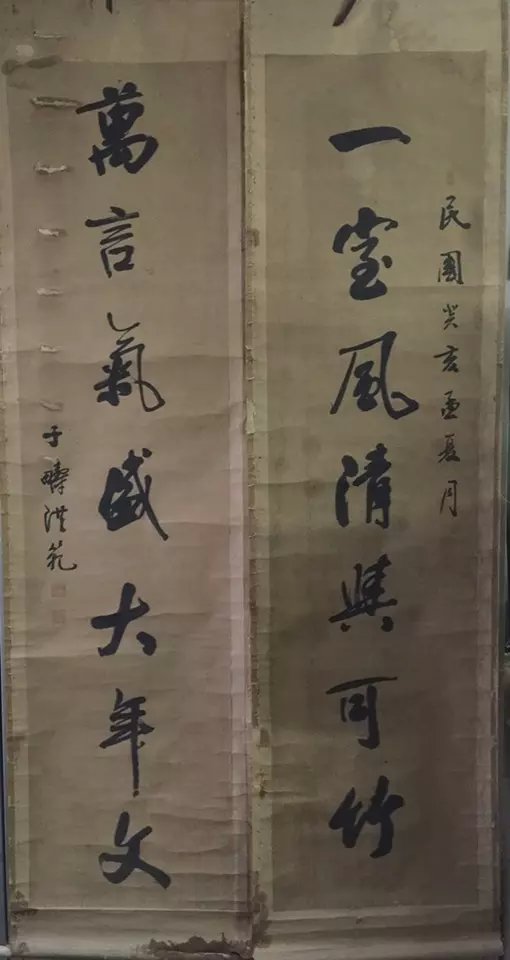 民國癸亥孟夏月
一室風清與可竹
萬言氣盛大年文
子疇洪範